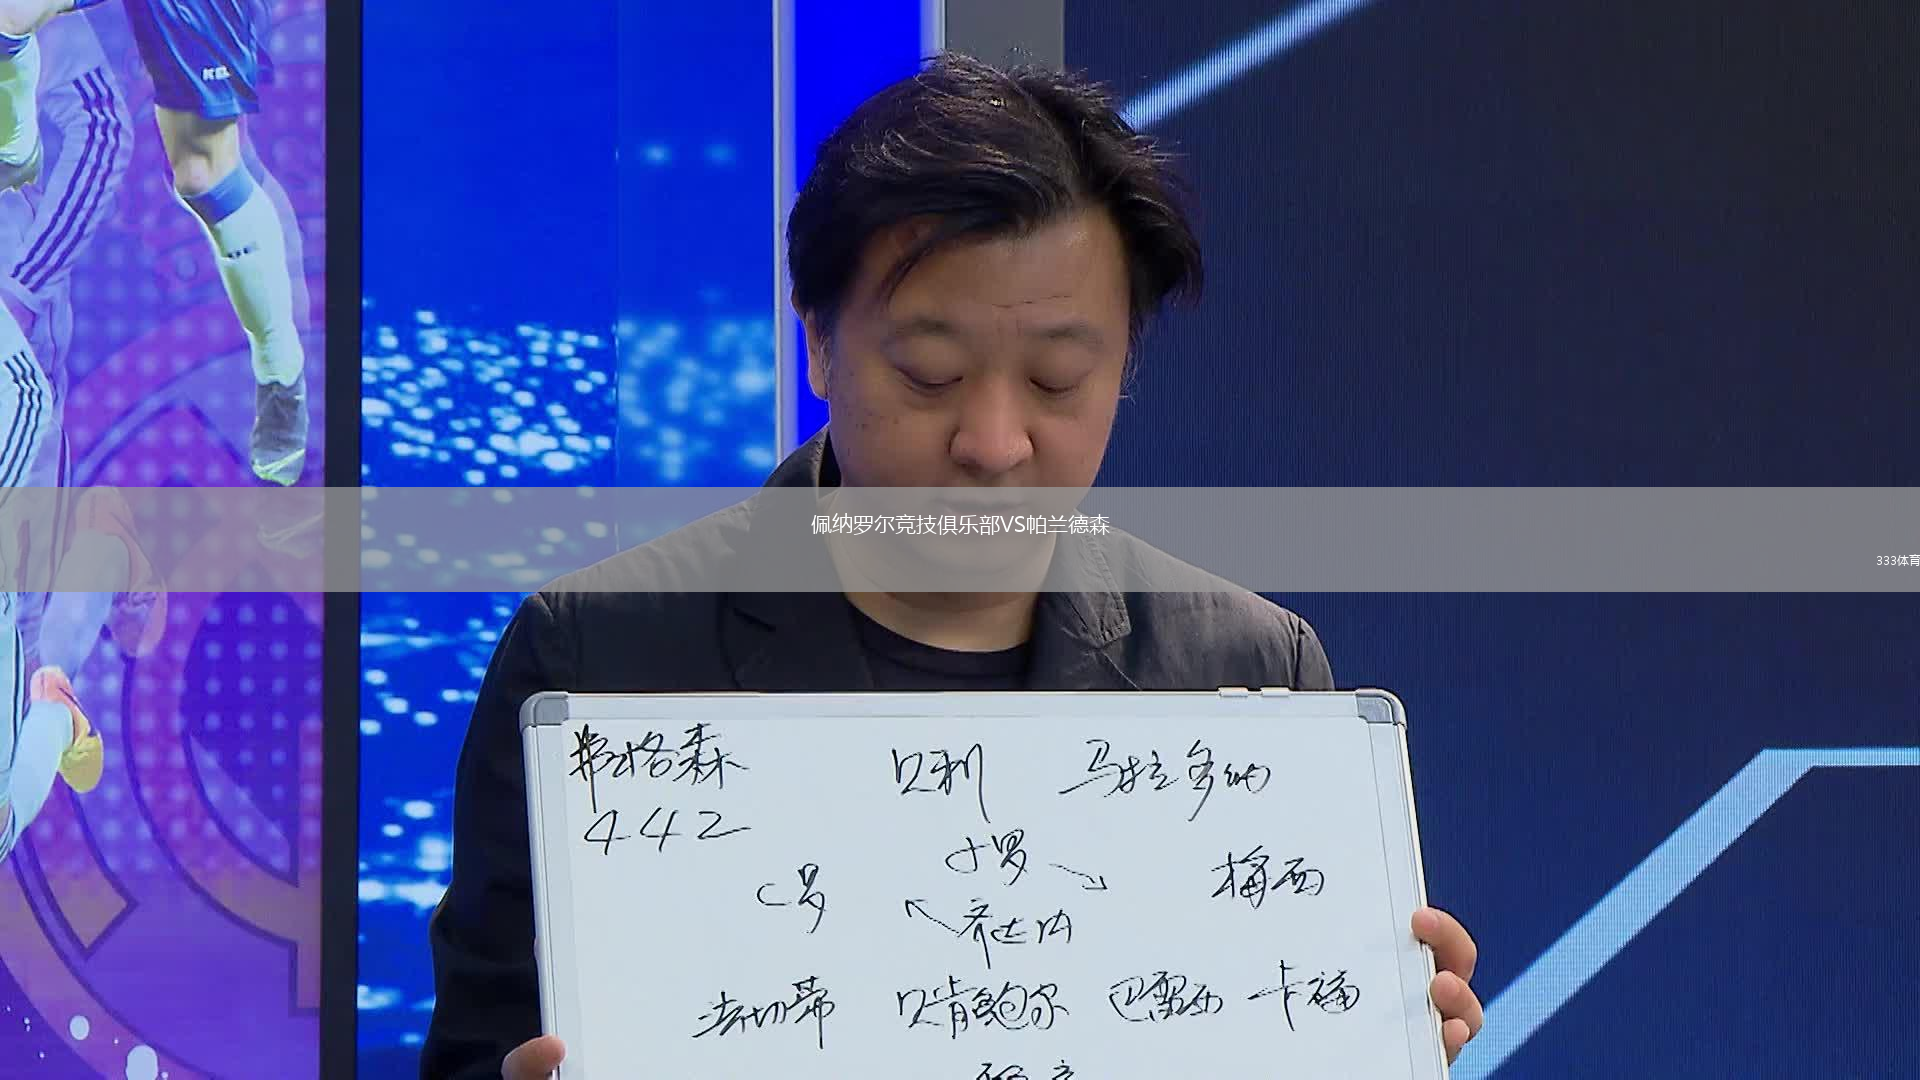 佩纳罗尔竞技俱乐部VS帕兰德森
333体育
弗格森 贝利 马拉多纳
442
小罗
C罗 梅西
齐达内
法切蒂 贝肯鲍尔 巴雷西 卡福